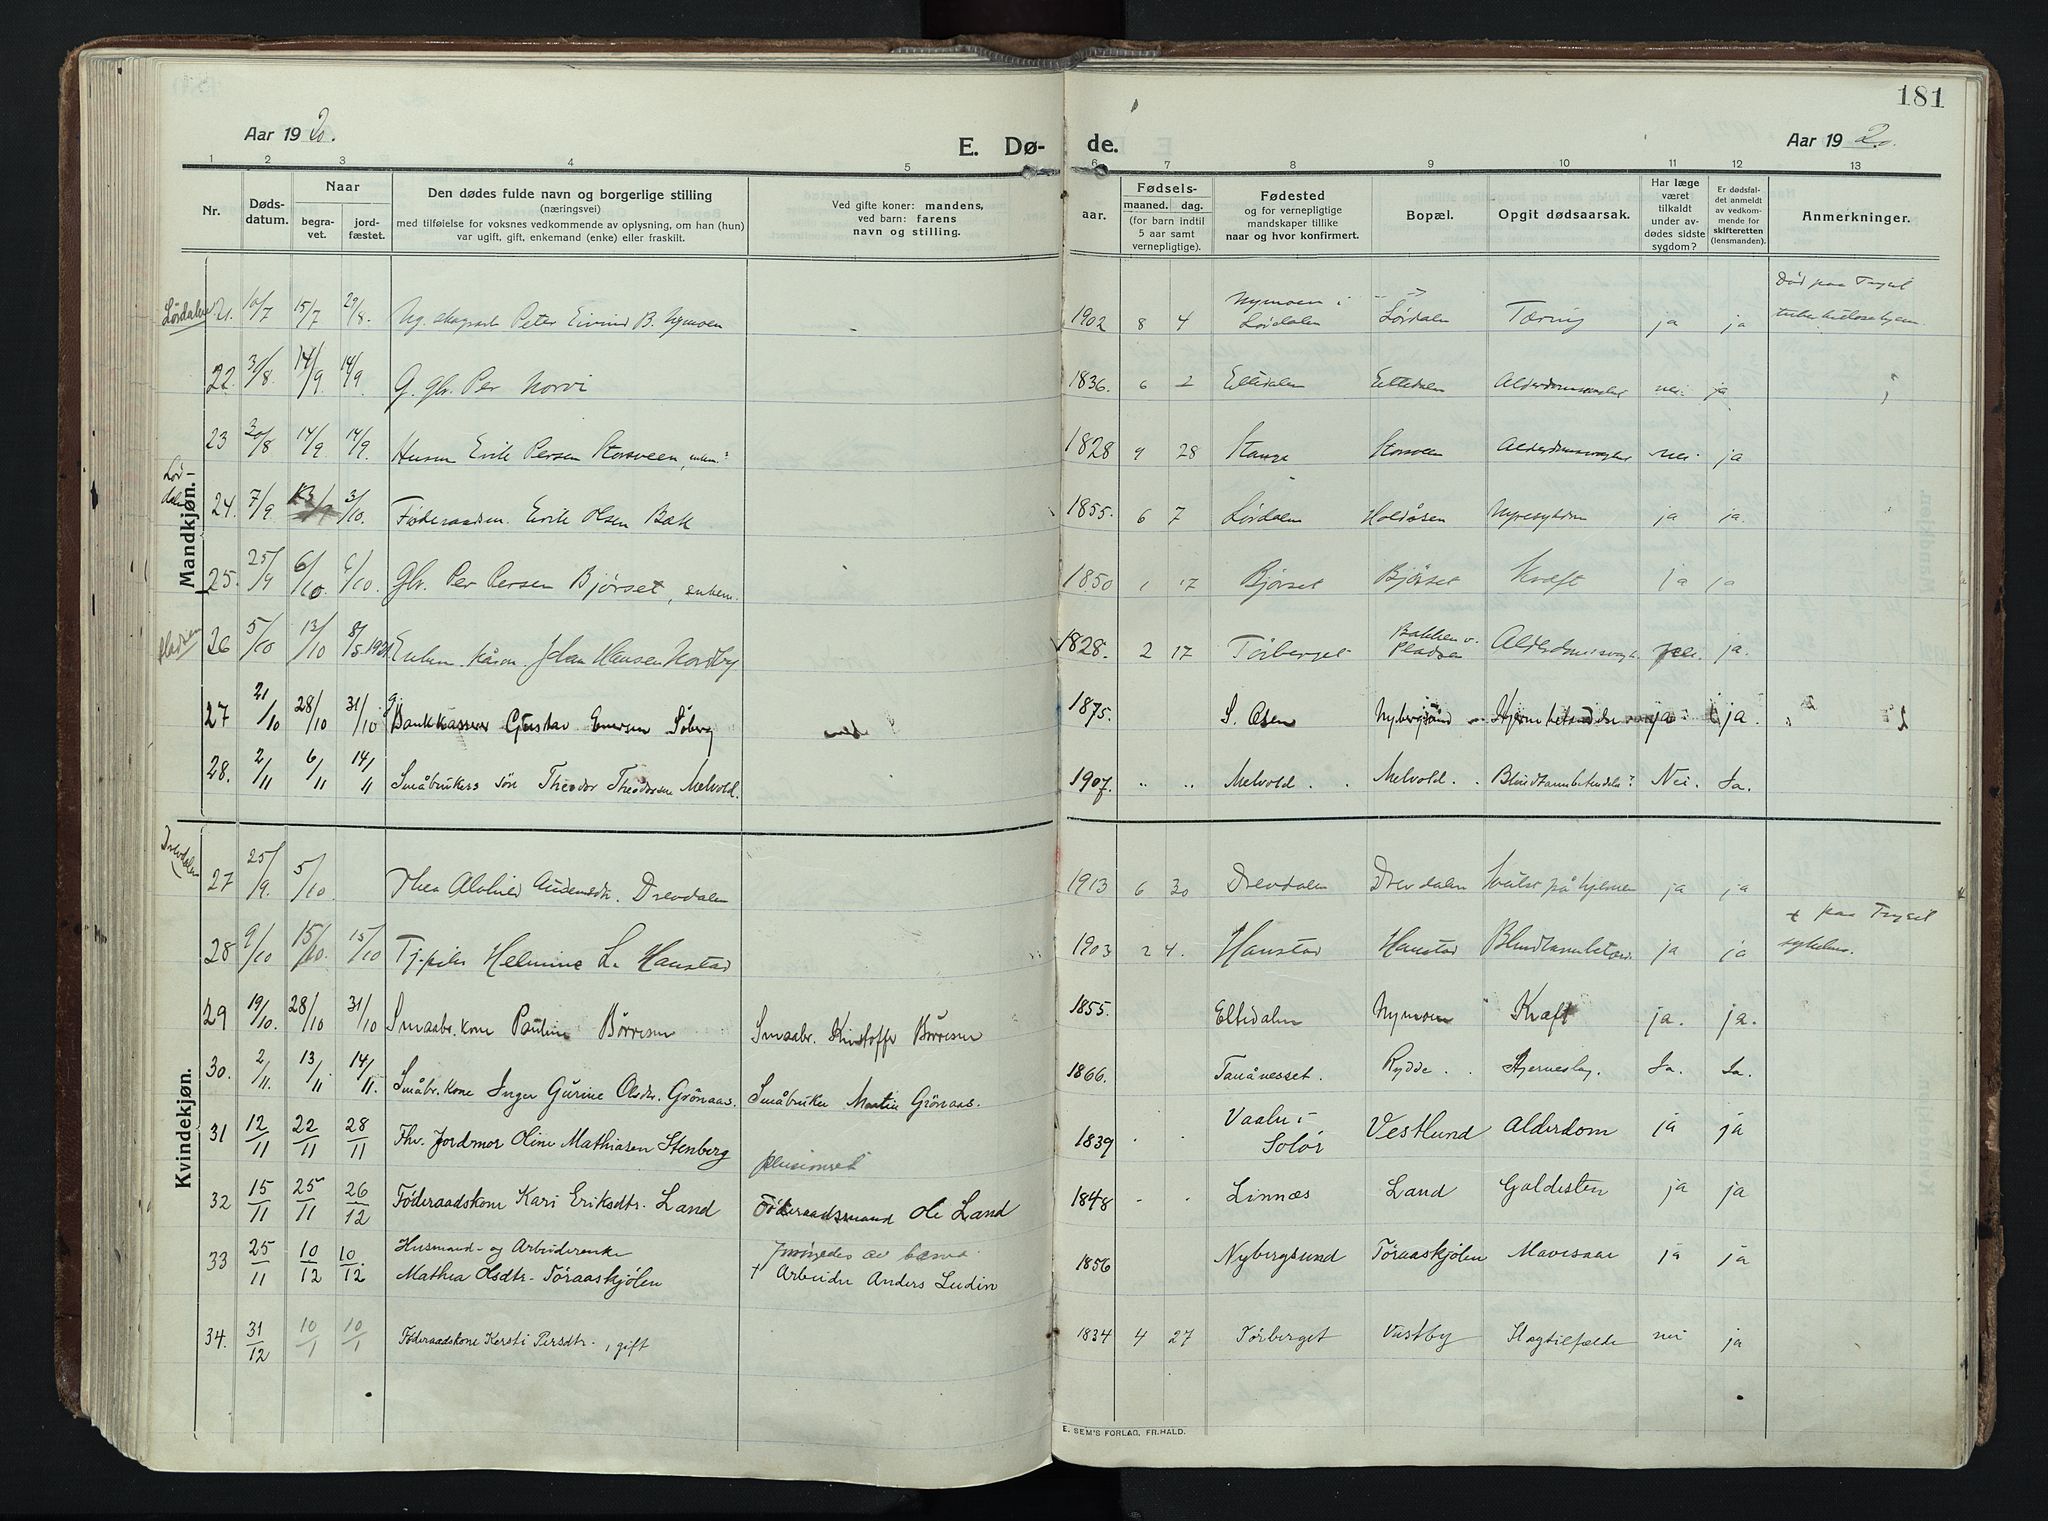 181
Aar 1920.
E. Dø-
de.
Aar 1920.
1 2 3 4 5 6 7 8 9 10 11 12 13
Nr.
Døds-
datum.
Naar
begra-
vet.
jord-
fæstet.
Den dødes fulde navn og borgerlige stilling
(næringsvei)
med tilføielse for voksnes vedkommende av oplysning, om han (hun)
var ugift, gift, enkemand (enke) eller fraskilt.
Ved gifte koner: mandens,
ved barn: farens
navn og stilling.
Fødsels-
aar.
maaned. dag.
(for barn indtil
5 aar samt
vernepligtige).
Fødested
og for vernepligtige
mandskaper tillike
naar og hvor konfirmert.
Bopæl.
Opgit dødsaarsak.
Har læge
været
tilkaldt
under av-
dødes sidste
sygdom?
Er dødsfal-
det anmeldt
av vedkom-
mende for
skifteretten
(lensmanden).
Anmerkninger.
Mandkjøn.
Lørdalen 21. 10/7 15/7 29/8. Peter Eivind B. Nymoen 1902 8 4 Nymoen i Lørdalen Lørdalen Tæring ja ja Død paa Trysil
22. 30/8 14/9 14/9 G. gbr. Per Norvi 1836. 6 2 Eltdalen Eltedalen nei. ja
23 30/8 14/9. 14/9. Husm Erik Persen Storsveen, 1828 9 28 Stange Storsveen nei ja
Lør-
dalen 24. 7/9 3/10. Føderaadsm. Erik Olsen Bak 1855. 6 7 Lørdalen Holdåsen Nyresykdom ja ja.
25. 25/9 6/10 6/10. Gbr. Per Persen Bjørset, enkem. 1850 1 17 Bjørset Bjørset Kræft ja ja
Pladsen 26 5/10 13/10 8/5 1921 Enkem. Johan Hansen Nordby 1828. 2 17 Törberget Bakken v. Pladsen nei. ja.
27 21/10 28/10 31/10 g. Bankkasserer Gustav Emersen Söberg 1875. S. Osen Nybergsund Hjernebetændelse ja ja.
28. 2/11 6/11 14/11 Småbrukers sön Theodor Theodorsen Melvold. 1907. " " Melvold. Melvold. Blindtarmbetændelse? Nei. Ja.
Kvindekjøn.
Drevdalen 27 25/9. 5/10. Thea Alvhild Audensdtr. Drevdalen 1913 6 30 Drevdalen Drevdalen Svulst på hjernen ja ja
28 9/10 15/10. 15/10 Tj.pike Helmine L. Hanstad 1903 2 4. Hanstad Hanstad Blindtarmbetænd. ja ja + paa Trysil sykehus.
29 19/10. 28/10 31/10 Smaabr. kone Pauline Börresen Smaabr. Kristoffer Börresen 1855. Eltedalen Nymoen Kræft ja. ja.
30. 2/11. 13/11 14/11. Småbr. kone Inger Gurine Olsdtr. Grönaas. Småbruker Martin Grönaas. 1866. Tanånesset. Rydde. Hjerneslag. Ja. Ja.
31 12/11 22/11 28/11 Fhv. Jordmor Oline Mathiasen Stenberg 1839 Vaaler i Solör Vestlund Alderdom ja ja
pensionert
32 15/11 25/11 26/12 Føderaadskone Kari Eriksdtr. Land Føderaadsmand Ole Land 1848 Linnæs Land Galdesten ja ja
33 25/11 10/12 10/12. Husmand- og Arbeiderenke
Mathea Olsdtr. Töraaskjölen forsörgedes av barna.
+ Arbeider Anders Ludin 1856 Nybergsund Töraaskjölen Mavesaar ja ja
34. 31/12 10/1 10/1 Føderaadskone Kersti Persdtr., gift 1834 4 27 Törberget Vestby Slagtilfælde nei ja
E. SEM'S FORLAG, FR.HALD.